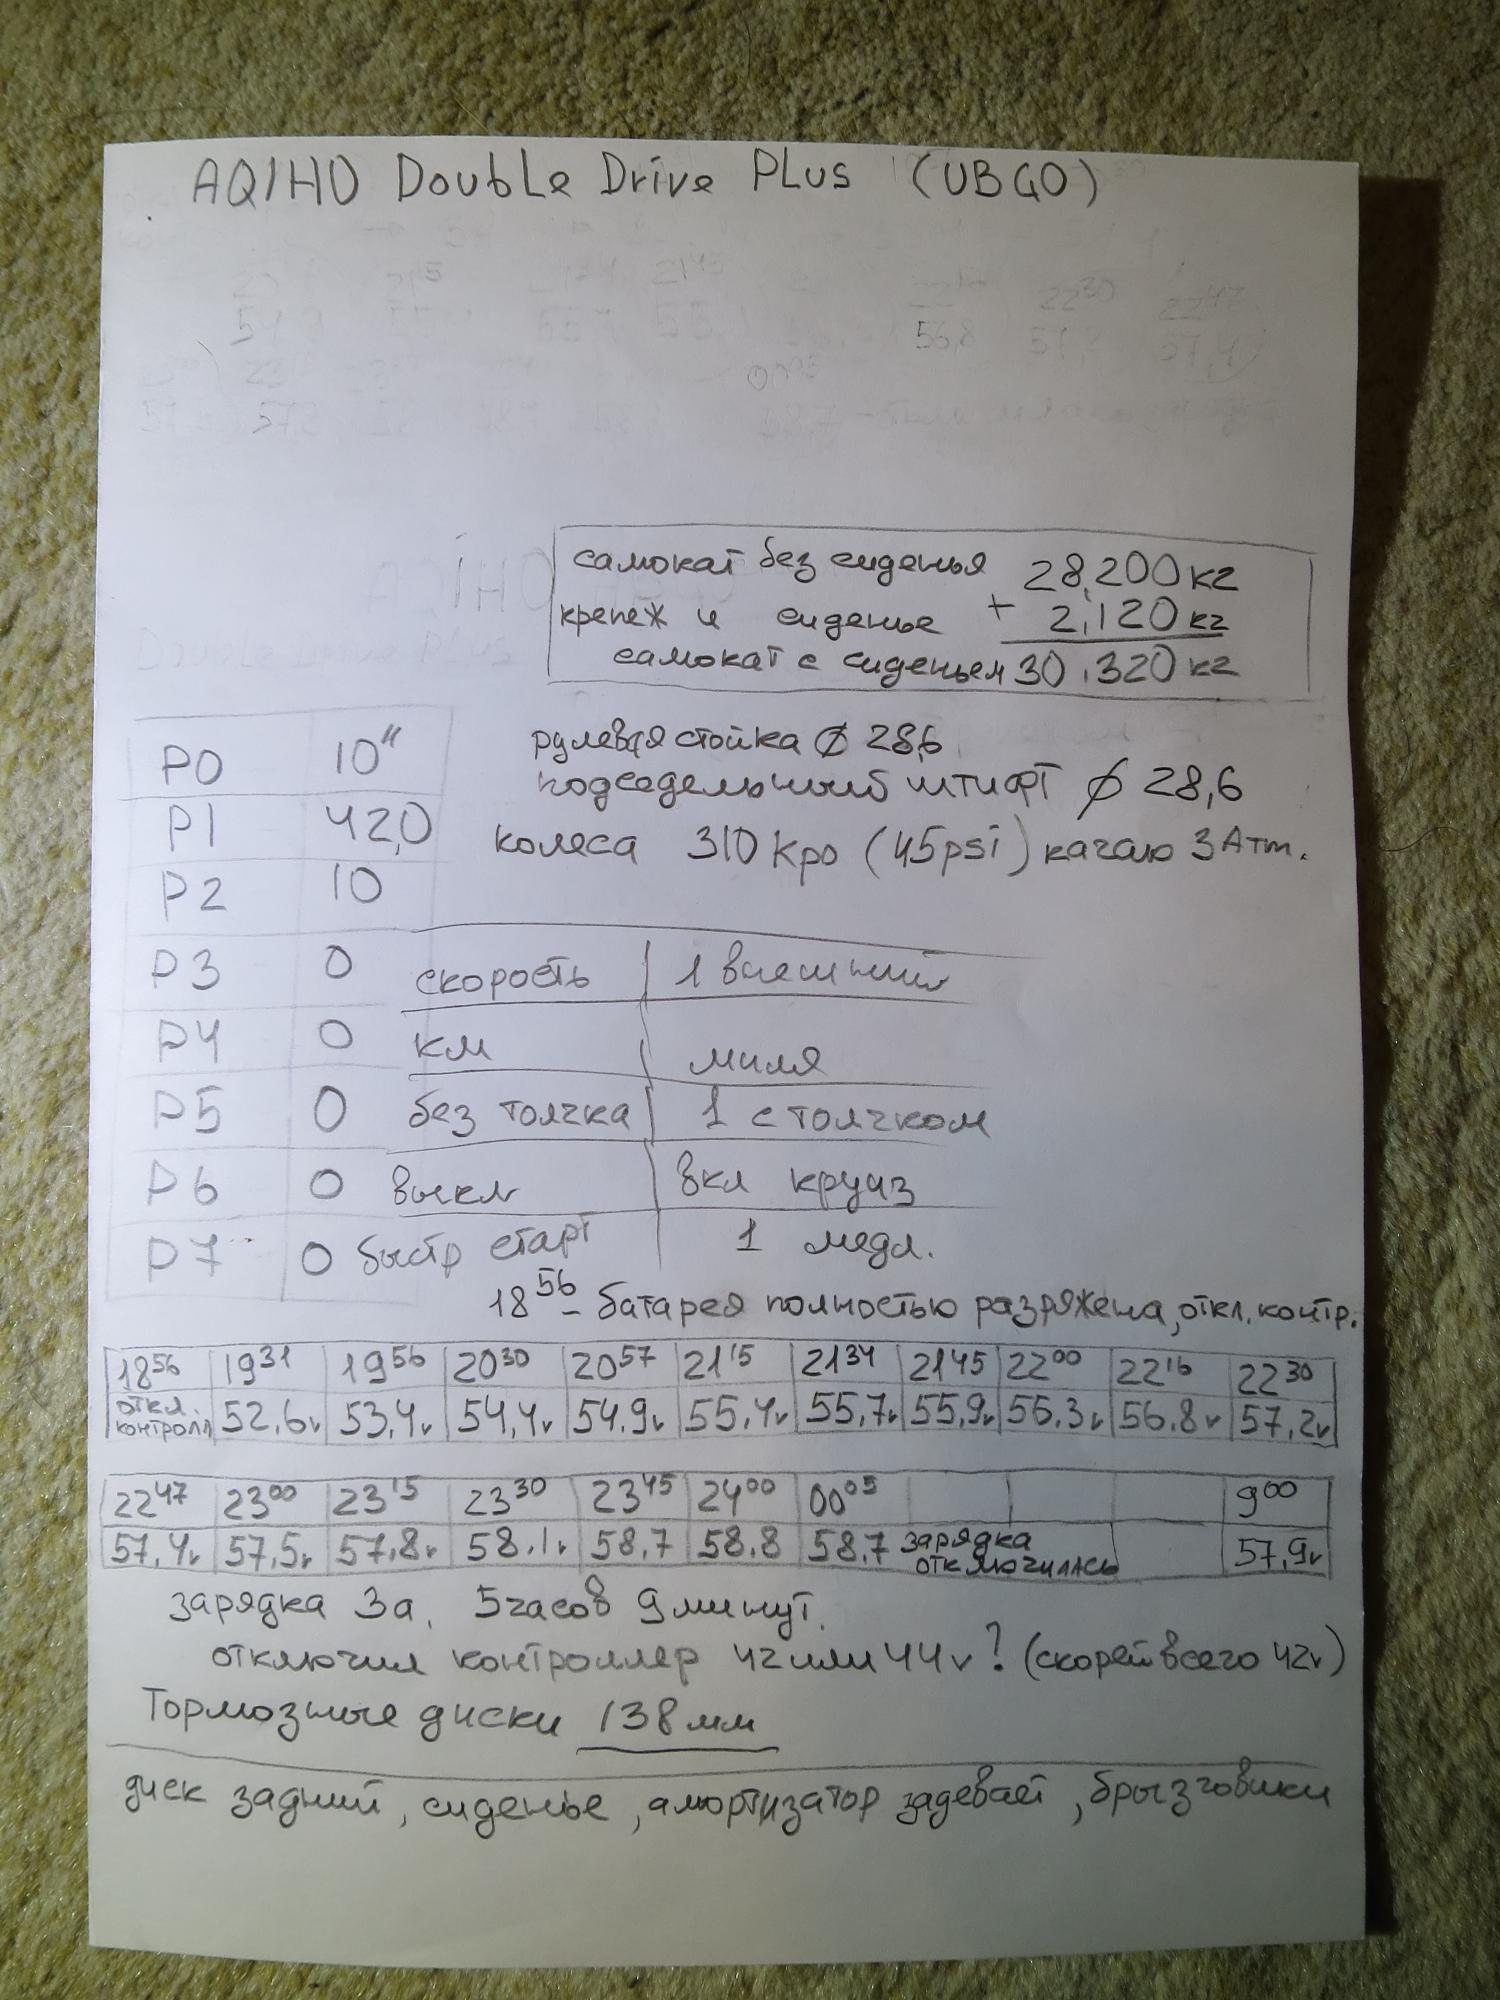 AQIHO Double Drive Plus (UBGO)
самокат без сиденья 28,200 кг
крепеж и сиденье + 2,120 кг
самокат с сиденьем 30,320 кг
рулевая стойка ∅ 28,6
подседельный штифт ∅ 28,6
колеса 310 Kpa (45psi) качаю 3 Атм.
P0 10"
P1 42,0
P2 10
P3 0 скорость 1 внешний
P4 0 км миля
P5 0 без толчка 1 с толчком
P6 0 выкл вкл круиз
P7 0 быстр старт 1 медл.
18⁵⁶ - батарея полностью разряжена, откл. контр.
18⁵⁶ 19³¹ 19⁵⁶ 20³⁰ 20⁵⁷ 21¹⁵ 21³⁴ 21⁴⁵ 22⁰⁰ 22¹⁶ 22³⁰
откл. контролл 52,6v 53,4v 54,4v 54,9v 55,4v 55,7v 55,9v 56,3v 56,8v 57,2v
22⁴⁷ 23⁰⁰ 23¹⁵ 23³⁰ 23⁴⁵ 24⁰⁰ 00⁰⁵ 9⁰⁰
57,4v 57,5v 57,8v 58,1v 58,7 58,8 58,7 зарядка отключилась 57,9v
зарядка 3а. 5 часов 9 минут.
отключил контроллер 42 или 44v? (скорей всего 42v)
Тормозные диски 138 мм
диск задний, сиденье, амортизатор задевает, брызговики